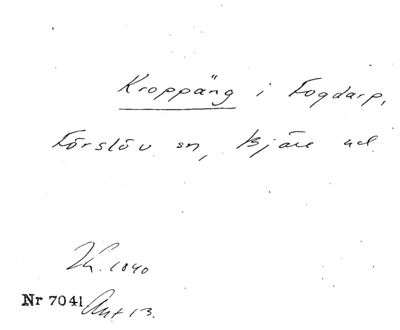 Kroppäng i Fogdarp,
Förslöv sn, Bjäre hd
Lh. 1840
Nr 7041 Ant 13.